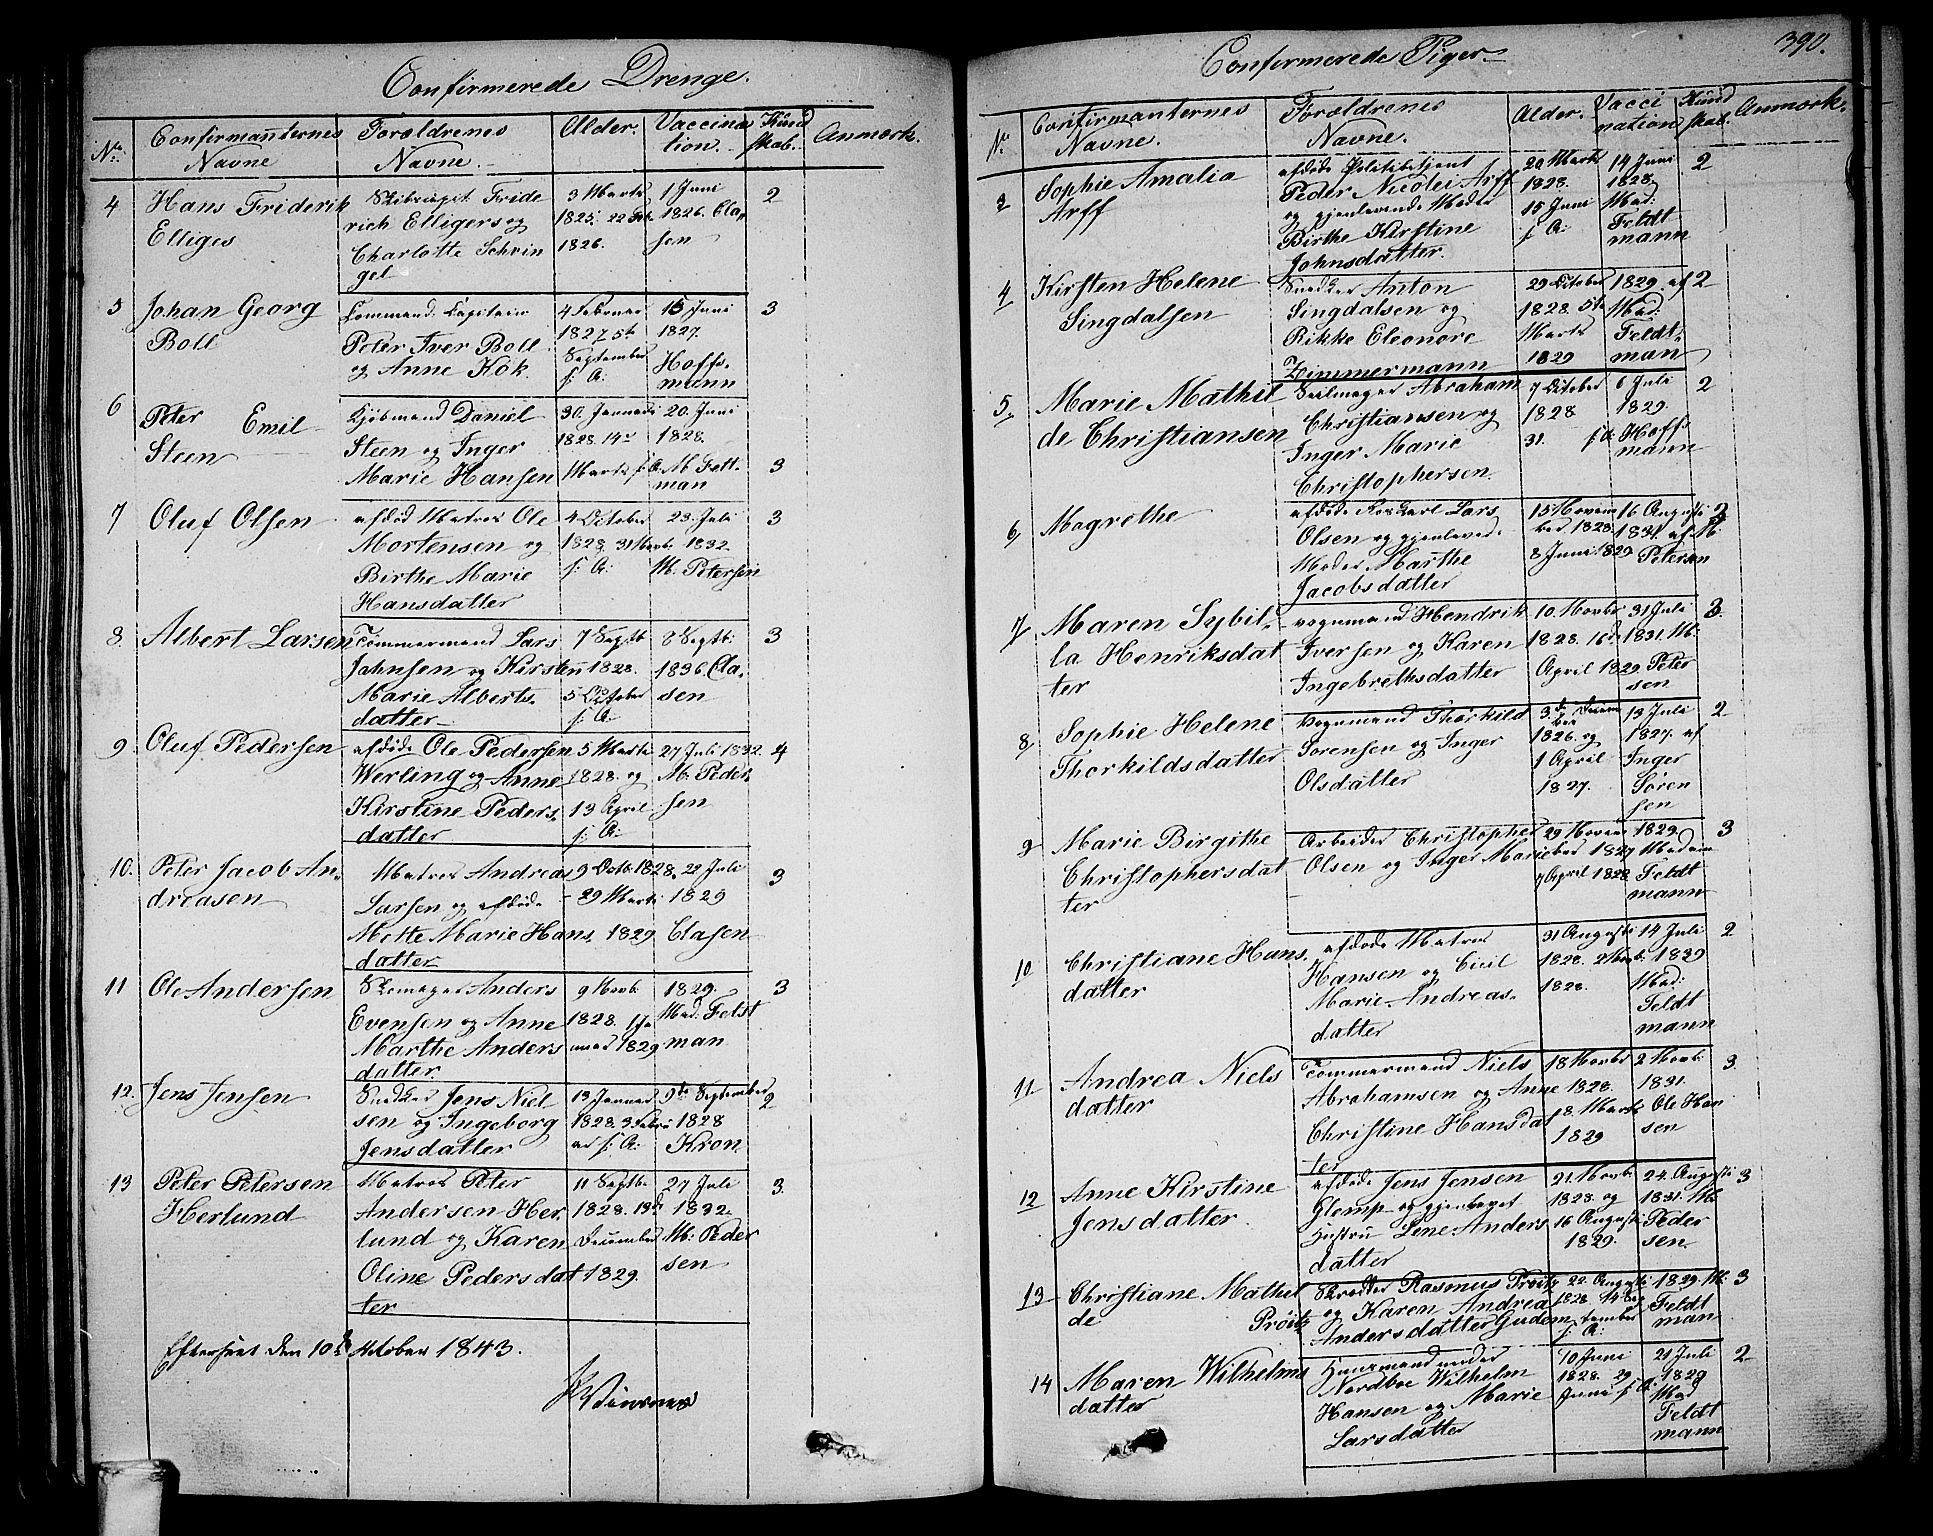 Confirmerede Drenge.
No. Confirmanternes Navne Forældrenes Navne. Alder. Vaccination. Kundskab. Anmærk.
4 Hans Friderik Elliges
Fride
rich Elligers og
Charlotte Schvin
gel
3 Marts 1825. 22
1826.
1 Juni
1826. Cla,
sen
2
5 Johan Georg
Boll
Command. Capitain
Peter Iver Boll
og Anne Kok.
4 Februar
1827, 5te
September
s: A:
15 Juni
1827.
Hoff,
mann
3
6 Peter Emil
Steen
Kjøbmand Daniel
Steen og Inger
Marie Hansen
30. Januari
1828. 14de
Marts s. A.
20. Juni
1828.
M Feltt
man
3
7 Oluf Olsen
afdød Matros Ole
Mortensen og
Birthe Marie
Hansdatter
4 October
1828. 31
s: A:
23. Juli
1832
M. Petersen
3
8. Albert Larsen
Tømmermand Lars
Jahnsen og Kirsten
Marie Alberts,
datter
7 Septb
1828.
5 October
s: A:
8 Septb:
1836. Cla,
sen
3
9 Oluf Pedersen
afdøde Ole Pedersen
Werling og Anne
Kirstine Peders,
datter
5 Marts
1828 og
13 April
s: A:
27 Juli 1832.
M. Peder,
sen
4
10. Peter Jacob An,
dreasen
Matros Andreas
Larsen og afdøde
Mette Marie Hans,
datter
9 Octb. 1828,
29 Marts
1829
22 Juli
1829
Clasen
3
11 Ole Andersen
Skomager Anders
Evensen og Anne
Marthe Anders
datter.
9 Novb.
1828. 1 Ja
nuar 1829
1829.
Mad. Felst
man
3
12. Jens Jensen
Snedker Jens Niel
sen og Ingeborg
Jensdatter
13 Januar
1828. 3 Febru
ar s: A:
9de September
1828
Kron
2
13 Peter Petersen
Herlund
Matros Peter
Andersen Her,
lund og Karen
Oline Pedersdat
ter
11 Septb
1828. 13de
December
1829.
27 Juli
1832.
M: Peder
sen
3.
Efterseet den 10de October 1843.
Confirmerede Piger
390.
No. Confirmanternes Navne. Forældrenes Navne. Alder. Vaccination Kundskab. Anmærk.
3 Sophie Amalia
Arff
afdøde Politibetjent
Peder Nicolei Arff
og gjenlevende Moder
Birthe Kirstine
Johnsdatter.
20 Marts
1828.
15 Juni
s A:
14 Juni
1828.
Mad:
Feldt
mann
2
4 Kirsten Helene
Singdalsen
Snedker Anton
Singdalsen og
Rikke Eleonore
Zimmermann
29 October
1828. 5te
Marts
1829
1829. af
Mad:
Feldt,
man
2
5 Marie Mathil
de Christiansen
Seilmager Abraham
Christiansen og
Inger Marie
Christophersen.
7 October
1828
31. s A:
6 Juli
1829.
Hoff,
mann
2
6 Magrethe
afdøde Lars
Olsen og gjenlevend.
Moder Marthe
Jacobsdatter
15 Novem
ber 1828.
8 Juni 1829
16 Augusti
1831. af M
Petersen
2
7 Maren Sybil,
la Henriksdat
ter
vognmand Hendrik
Iversen og Karen
Ingebrethsdatter
10. Novbr
1828. 16de
April 1829
31 Juli
1831. M.
Peter
sen
3.
8 Sophie Helene
Thorkildsdatter
Vognmand Thorkild
Sørensen og Inger
Olsdatter
3. de Decem
ber
1826. og
1 April
1827.
13 Juli
1827. af
Inger
Søren
sen
2
9 Marie Birgithe
Christophersdat
ter
Arbeider Christopher
Olsen og Inger Marie
29 Novem
ber 1827
7 April 1828
1829.
Madam
Feldt
mann
3
10 Christiane Hans,
datter
afdøde Matros
Hansen og Cicil
Marie Andreas,
datter
31 Augusti
1828. 2 Novb.
1828.
14 Juli
1829
Mad:
Feldt
mann
2
11 Andrea Niels
datter
Tømmermand Niels
Abrahamsen og Anne
Christine Hansdat
ter
18 Novbr
1828.
8 Marts
1829
2 Novb.
1831.
Ole Han
sen
3.
12 Anne Kirstine
Jensdatter.
afdøde Jens Jensen
Glemp og gjenlevet
Hustru Lene Anders
datter
21 Novbr
1828 og
16 Augusti
1829.
24. Augusti
1831. M.
Peder
sen.
3
13 Christiane Mathil
de Prøitz
Skræder Rasmus Prøitz
og Karen Andrea
Andersdatter Gudem
22. Augusti
1828. 14 Sep
tember
s. A:
1829. M:
Feldt
man
3
14 Maren Wilhelms
datter
Huusmand under
Nordboe Wilhelm
Hansen og Marie
Larsdatter
10 Juni
1828. 29
Juni s. A:
21 Juli
1829
Mad
Feldt
mann
2